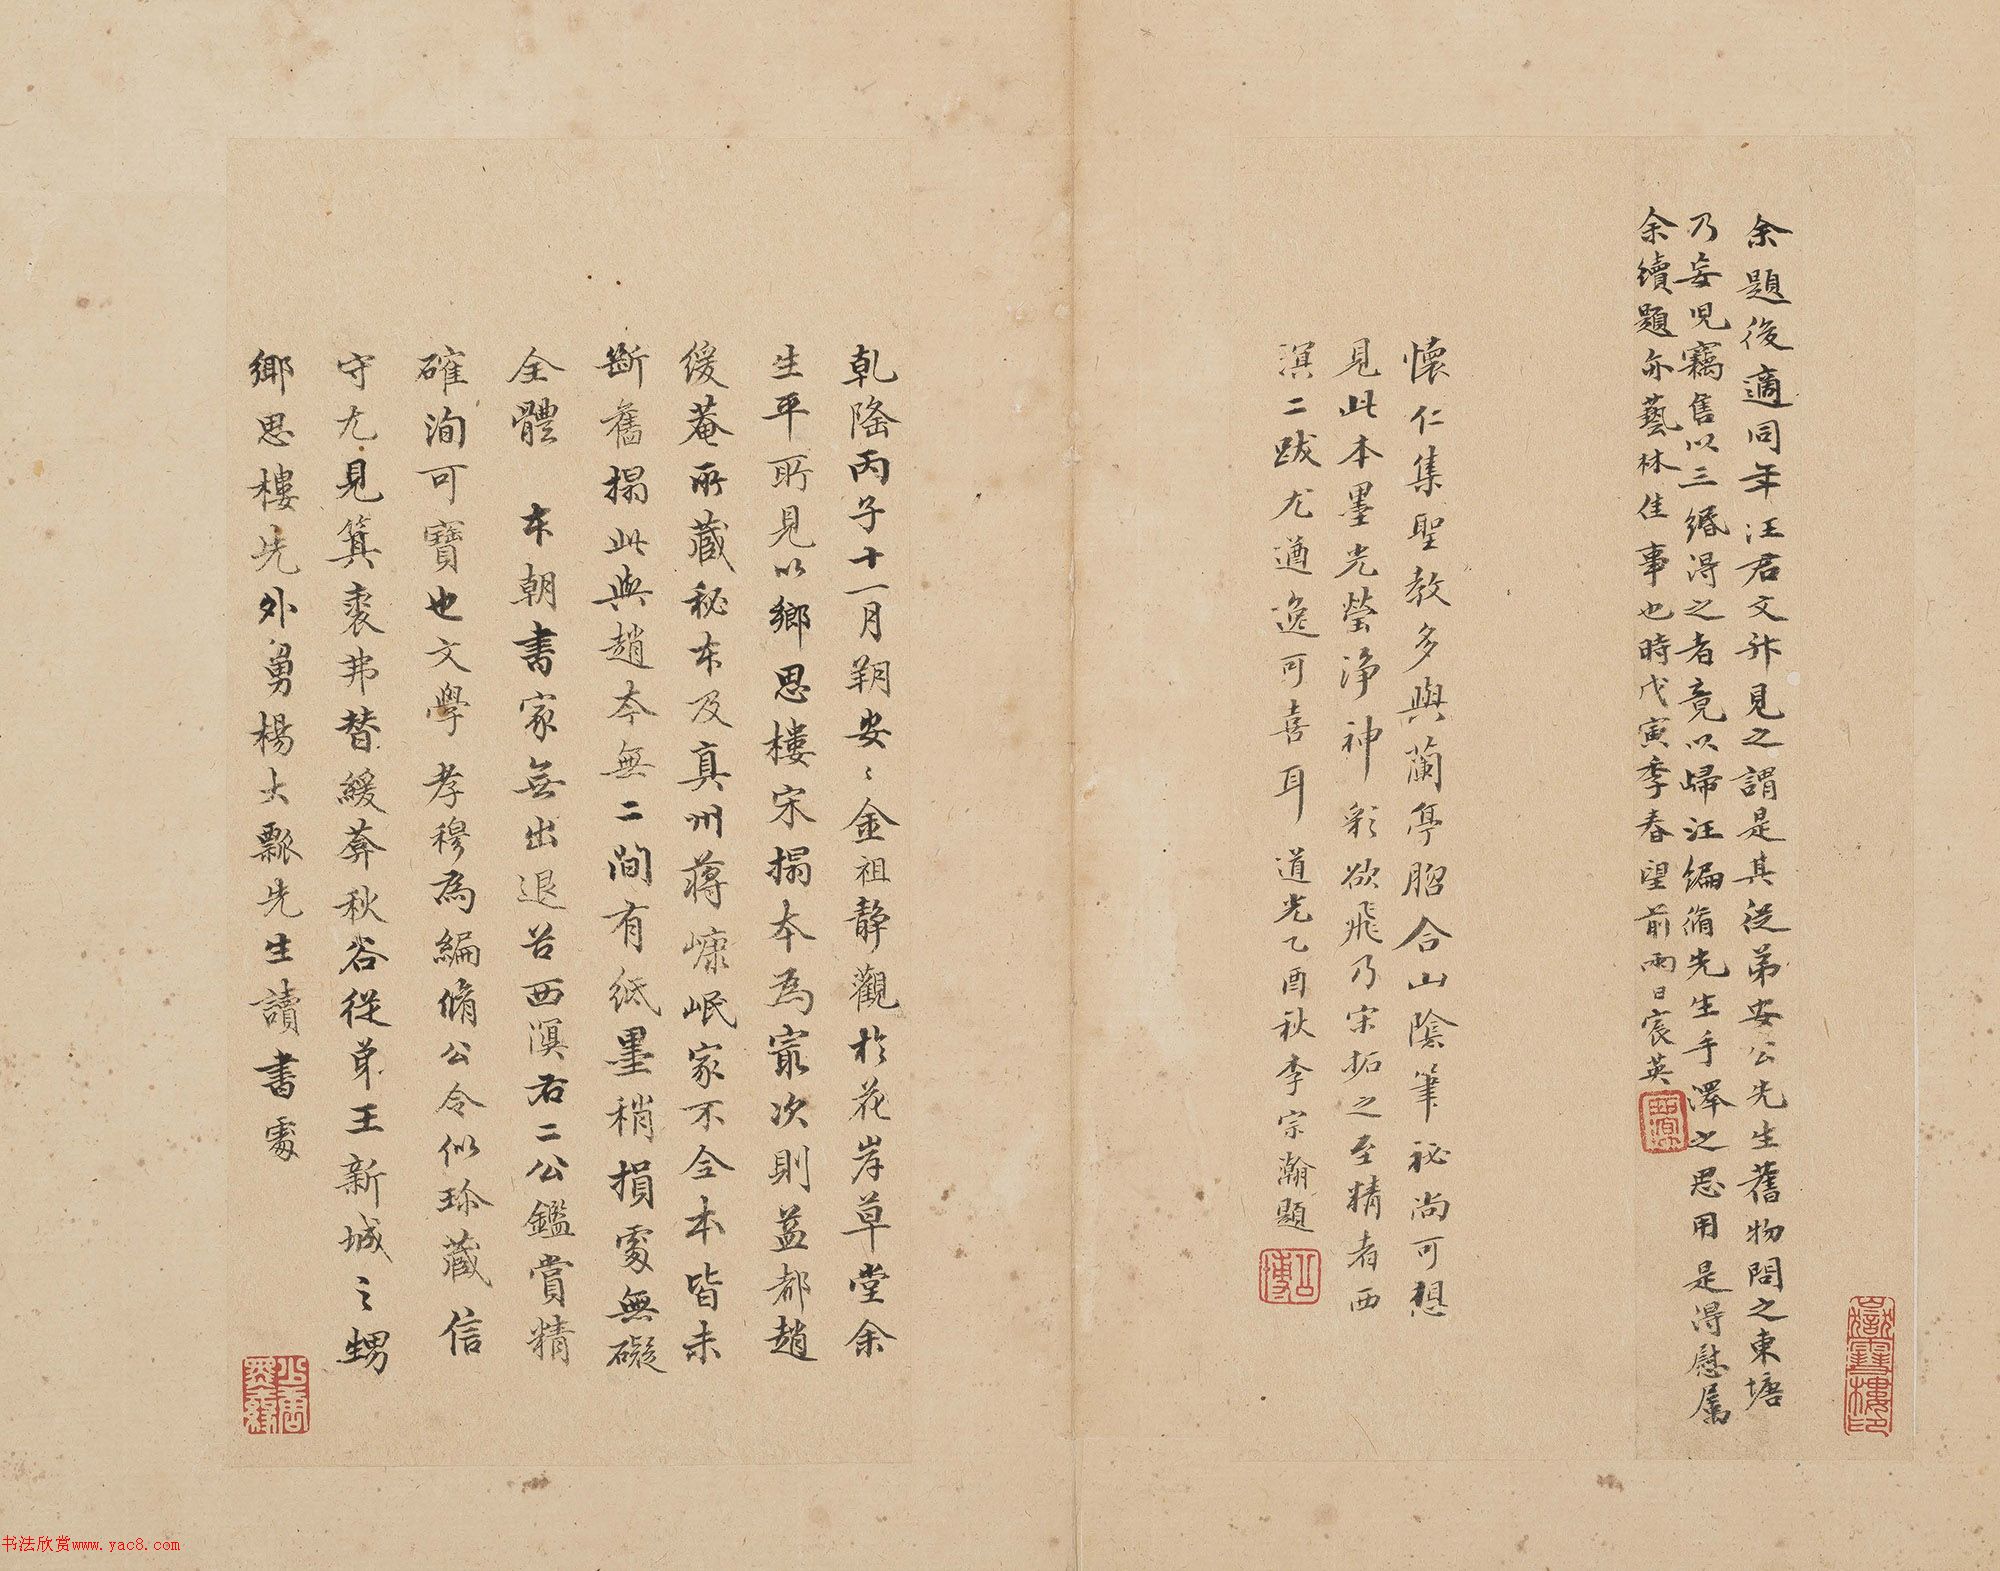 余題後適同年汪君文升見之謂是其從弟安公先生舊物問之東塘
乃妄児竊售以三緡得之者竟以歸汪編脩先生手澤之思用是得慰属
余續題亦藝林佳事也時戊寅季春望前兩日宸英
西溟
嶽雪樓印
懷仁集聖教多與蘭亭脗合山陰筆祕尚可想
見此本墨光瑩淨神彩欲飛乃宋拓之至精者西
溟二跋尤遒逸可喜耳 道光乙酉秋李宗瀚題
公博
乾隆丙子十一月朔安〻金祖静觀於花岸草堂余
生平所見以鄉思樓宋搨本為冣次則益都趙
緩菴所藏秘本及真州蔣㠊岷家不全本皆未
斷舊搨此與趙本無二間有紙墨稍損處無礙
全體 本朝書家無出退谷西溟右二公鑑賞精
確洵可寶也文學孝穆為編脩公令似珍藏信
守尤見箕裘弗替緩葊秋谷從弟王新城之甥
鄉思樓先外舅楊大瓢先生讀書處